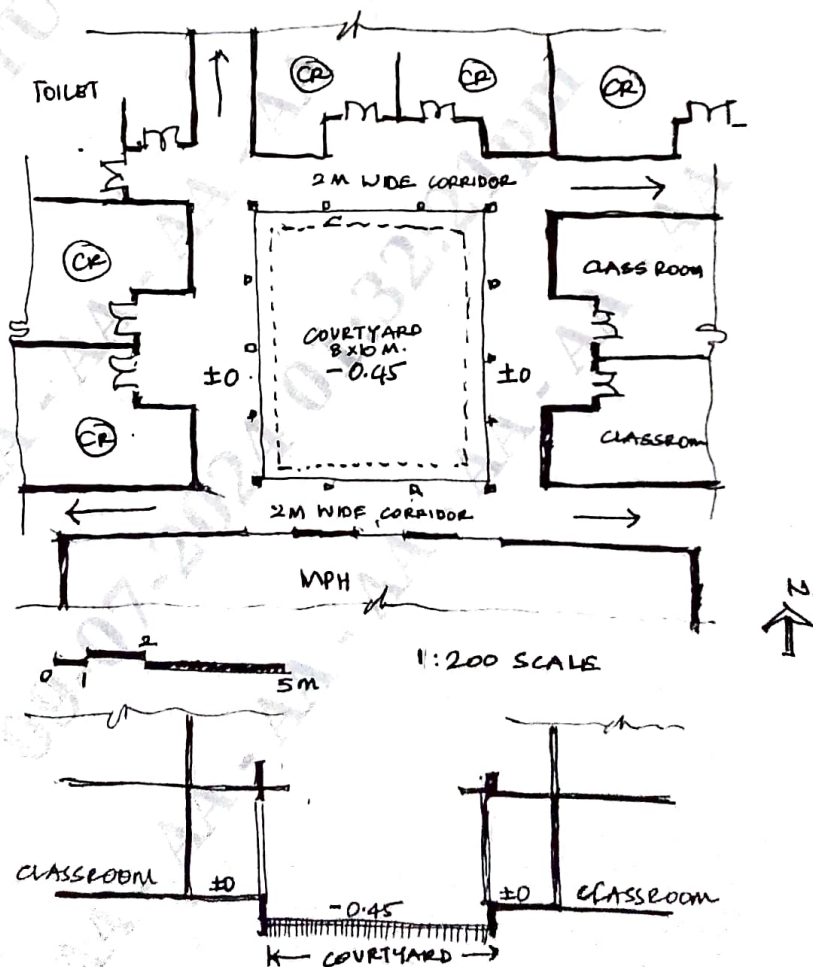 CR
CR
CR
TOILET
2 M WIDE CORRIDOR
CR
CLASS ROOM
COURTYARD
8 x 10 M.
-0.45
±0
±0
CR
CLASSROM
2M WIDE CORRIDOR
MPH
N
0 1 2 5 M
1:200 SCALE
CLASSROOM
±0
-0.45
±0
CLASSROOM
COURTYARD